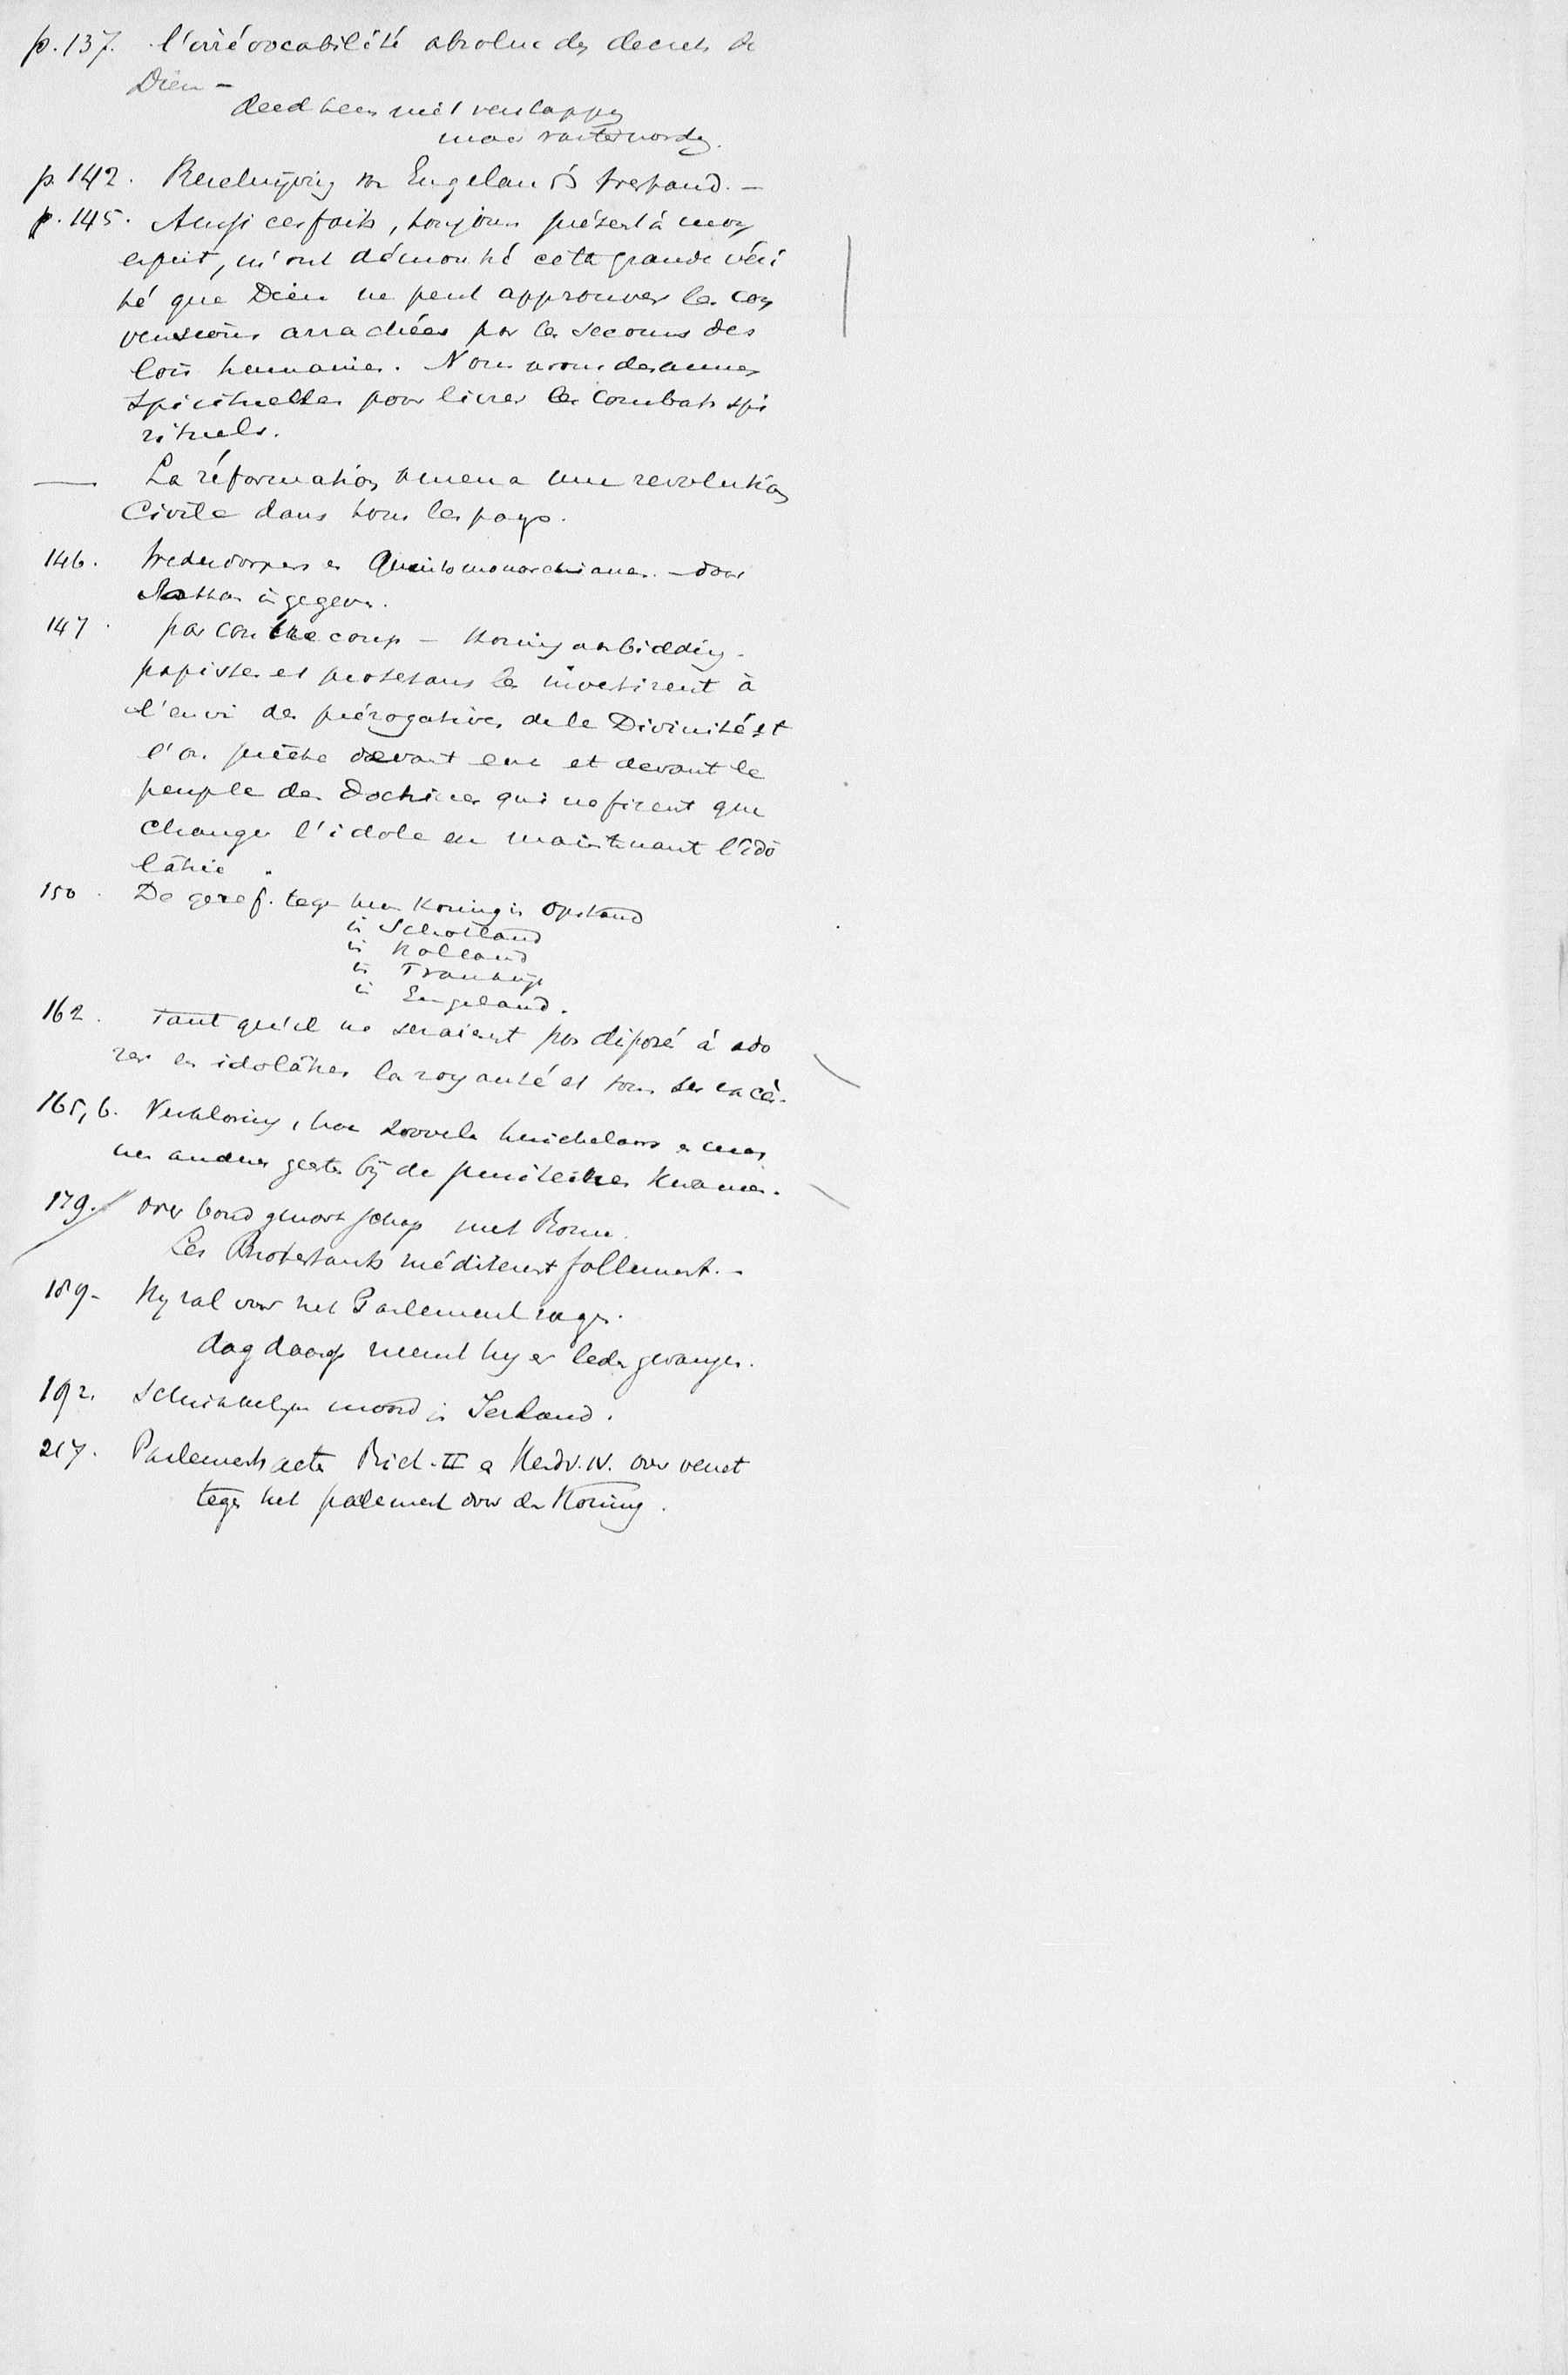 p. 137. l'irrévocabilité absolue des decrets de
Dieu –
deed hen niet verslappen
maar vaster worden.
p. 142. Beschrijving van Engelands
p. 145. Aussi ces faits, toujours présent à mon
esprit, m'ont démontré cette grande véri
té que Dieu ne peut approuver les con
versions arrachées par le secours des
lois humaines. Nous avons des armes
spirituelles pour livrer les combats spi
rituels.
— La réformation amena une revolution
Civile dans tous les pays.
146. en Quintomonarchianen. – door
ingegeven.
147. par contrecoup – Koningaanbidding.
papistes et protestans les investirent à
l'envi des prérogatives de la Divinité et
l'on prêcha devant eux et devant le
peuple des doctrines qui ne firent que
changer l'idole en maintenant l'ido
lâtrie.
150. De geref. tegen hun Koning in Opstand
in Schotland
in Holland
in Frankrijk
in Engeland.
162. Tant qu'il ne seraient pas disposé à ado
rer en idolâtres la royauté et tous ses excès.
165, 6. Verklaring, hoe zooveel huichelaars en
andere bij de Puriteinen kwamen.
179. Over bondgenootschap met Rome.
Les Protestants méditèrent follement. –
189 – Hy zal voor het Parlement zorgen.
dag daarop neemt hy er leden gevangen.
192. Schrikkelyke moord in Ierland.
217. Parlements acte Rich. II en Hendr. IV. over verzet
tegen het parlement door den Koning.